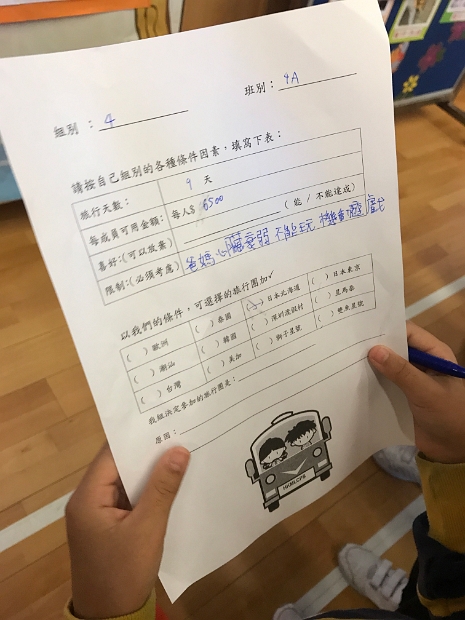 組別：4
班別：4A
請按自己組別的各種條件因素，填寫下表：
旅行天數： 9 天
每成員可用金額： 每人$ 6500
喜好：(可以放棄) (能 / 不能達成)
限制：(必須考慮) 爸媽心臟衰弱 不能玩
以我們的條件，可選擇的旅行團加✓
( ) 歐洲 ( ) 泰國 (✓) 日本北海道 ( ) 日本東京
( ) 潮汕 ( ) 韓國 ( ) 深圳渡假村 ( ) 星馬泰
( ) 台灣 ( ) 美加 ( ) 獅子星號 ( ) 雙魚星號
我組決定參加的旅行團是：
原因：